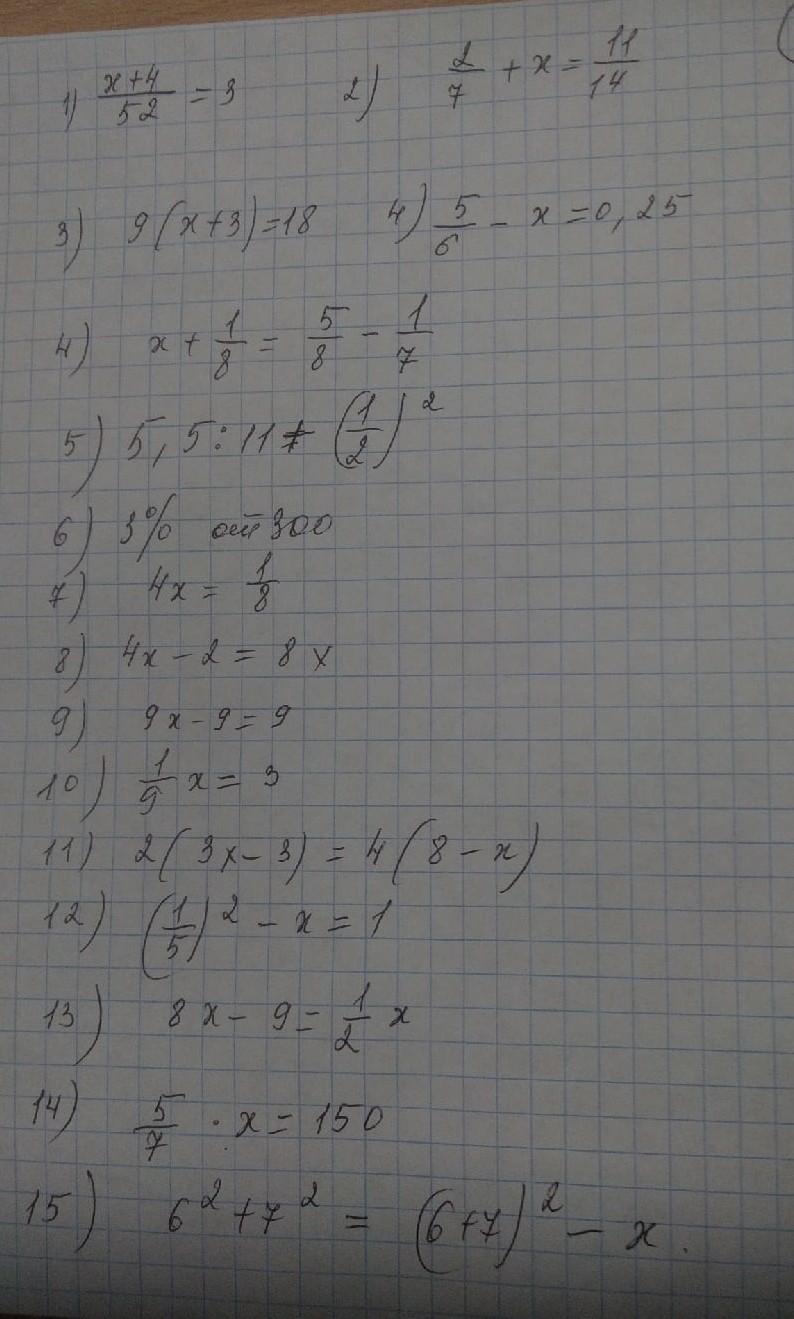 1) (x+4)/52 = 3 2) 2/7 + x = 11/14
3) 9(x+3)=18 4) 5/6 - x = 0,25
4) x + 1/8 = 5/8 - 1/7
5) 5,5 : 11 + (1/2)²
6) 3% от 300
7) 4x = 1/8
8) 4x - 2 = 8x
9) 9x - 9 = 9
10) 1/9 x = 3
11) 2(3x - 3) = 4(8 - x)
12) (1/5)² - x = 1
13) 8x - 9 = 1/2 x
14) 5/7 · x = 150
15) 6² + 7² = (6+7)² - x.